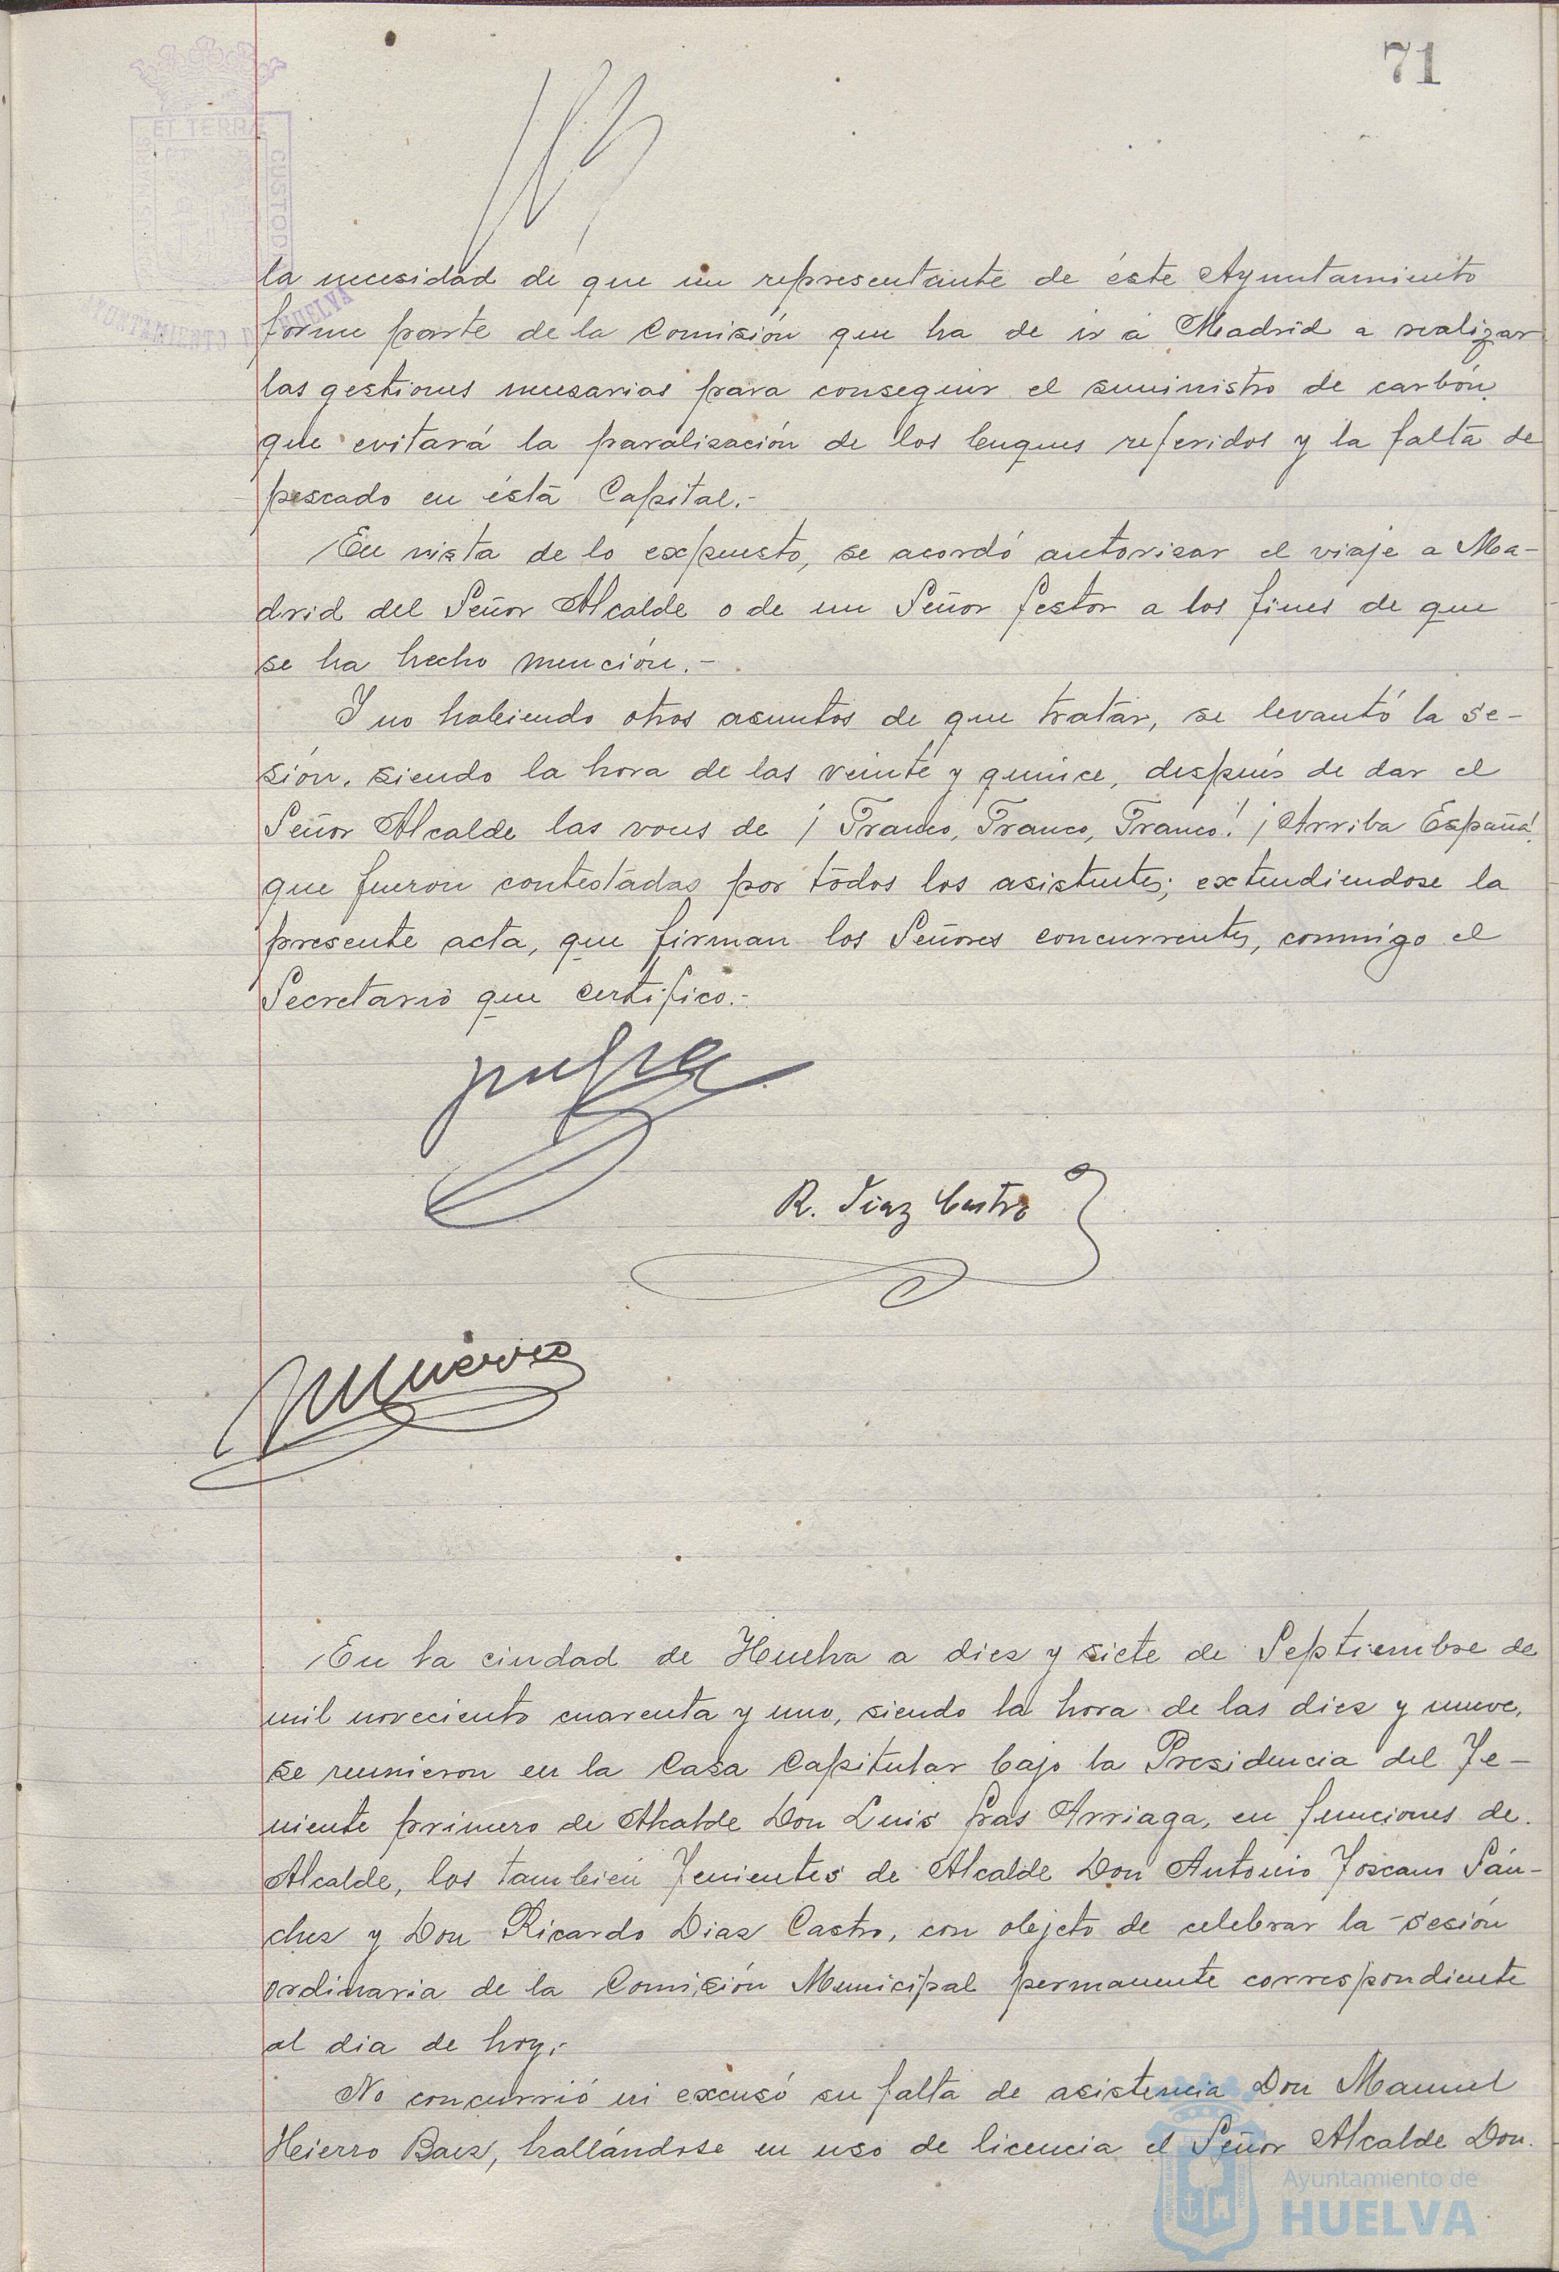 71
ET TERRÆ
CUSTODIA
AYUNTAMIENTO DE HUELVA
la necesidad de que un representante de éste Ayuntamiento
forme parte de la Comisión que ha de ir a Madrid a realizar
las gestiones necesarias para conseguir el suministro de carbón,
que evitará la paralización de los buques referidos y la falta de
pescado en ésta Capital.-
En vista de lo expuesto, se acordó autorizar el viaje a Ma-
drid del Señor Alcalde o de un Señor Gestor a los fines de que
se ha hecho mención.-
Y no habiendo otros asuntos de que tratar, se levantó la se-
sión, siendo la hora de las veinte y quince, después de dar el
Señor Alcalde las voces de ¡Franco, Franco, Franco! ¡Arriba España!
que fueron contestadas por todos los asistentes; extendiendose la
presente acta, que firman los Señores concurrentes, conmigo el
Secretario que certifico.-
R. Diaz Castro
En la ciudad de Huelva a diez y siete de Septiembre de
mil novecientos cuarenta y uno, siendo la hora de las diez y nueve,
se reunieron en la Casa Capitular bajo la Presidencia del Te-
niente primero de Alcalde Don Luis Gras Arriaga, en funciones de
Alcalde, los también Tenientes de Alcalde Don Antonio Toscano Sán-
chez y Don Ricardo Diaz Castro, con objeto de celebrar la sesión
ordinaria de la Comisión Municipal permanente correspondiente
al dia de hoy.-
No concurrió ni excusó su falta de asistencia Don Manuel
Hierro Baez, hallándose en uso de licencia el Señor Alcalde Don
Ayuntamiento de
HUELVA